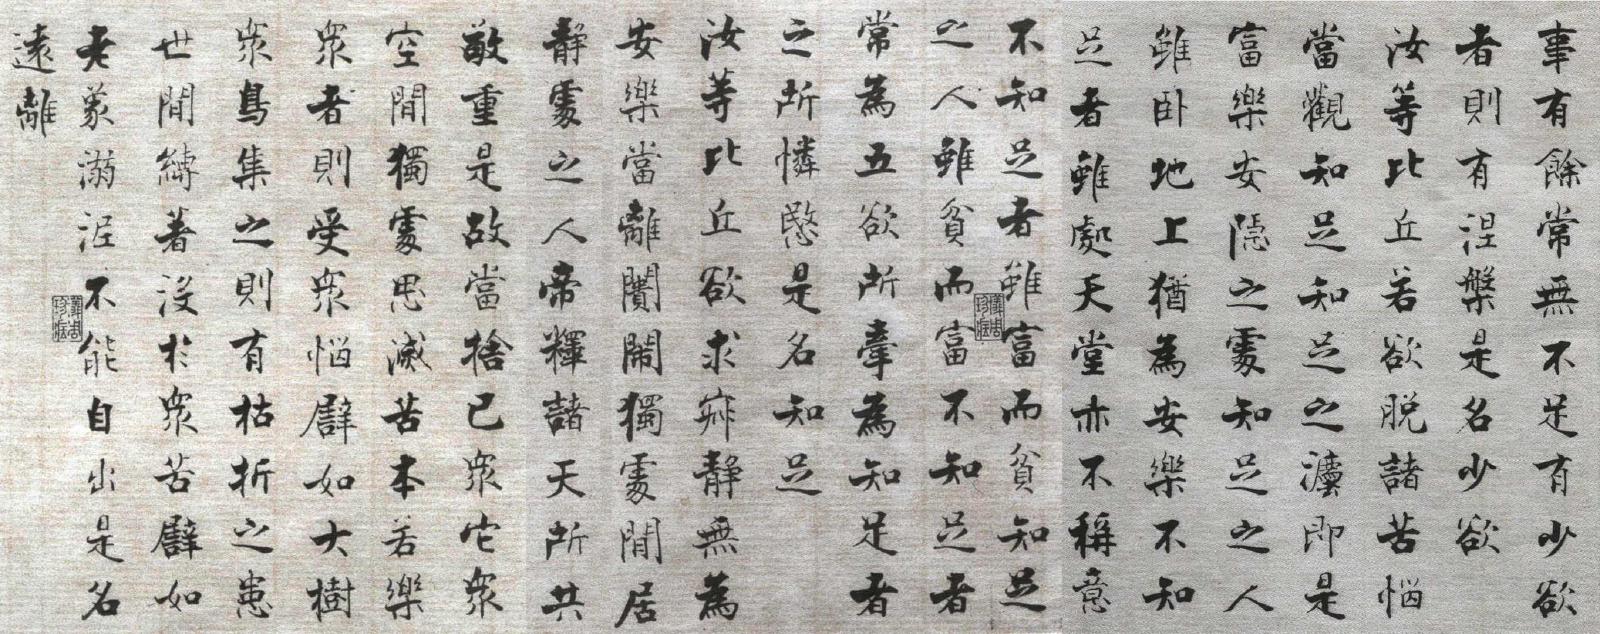 事有餘常無不足有少欲
者則有涅槃是名少欲
汝等比丘若欲脱諸苦惱
當觀知足知足之灋即是
富樂安隱之處知足之人
雖卧地上猶為安樂不知
足者雖處天堂亦不稱意
不知足者雖富而貧知足
之人雖貧而富不知足者
常為五欲所牽為知足者
之所憐愍是名知足
汝等比丘欲求寂静無為
安樂當離閙獨處閒居
静處之人帝釋諸天所共
敬重是故當捨己衆它衆
空閒獨處思滅苦本若樂
衆者則受衆惱譬如大樹
衆鳥集之則有枯折之患
世間縛著沒於衆苦譬如
老象溺泥不能自出是名
遠離